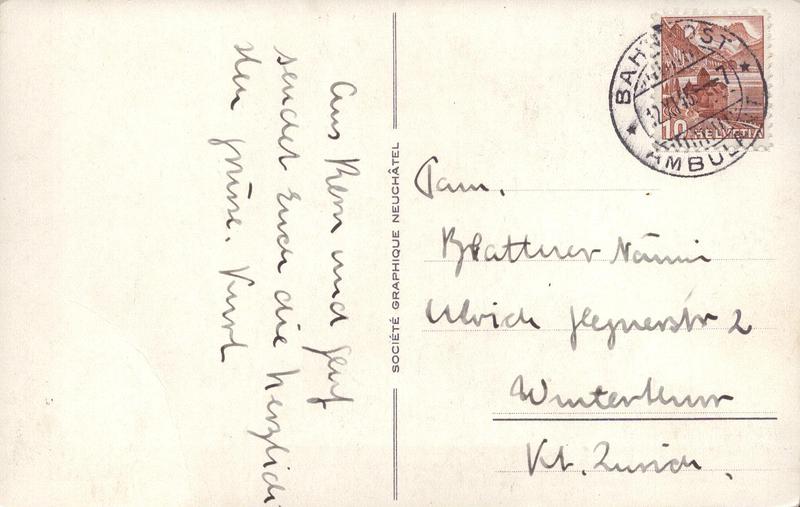 Aus Bern und Genf
sendet Euch die herzlich-
sten Grüsse. Kurt
SOCIÉTÉ GRAPHIQUE NEUCHÂTEL
BAHNPOST
AMBULANT
12.XI.45 - 7
10 HELVETIA
Fam.
Blattner Nänni
Ulrich Hegnerstr 2
Winterthur
Kt. Zürich.